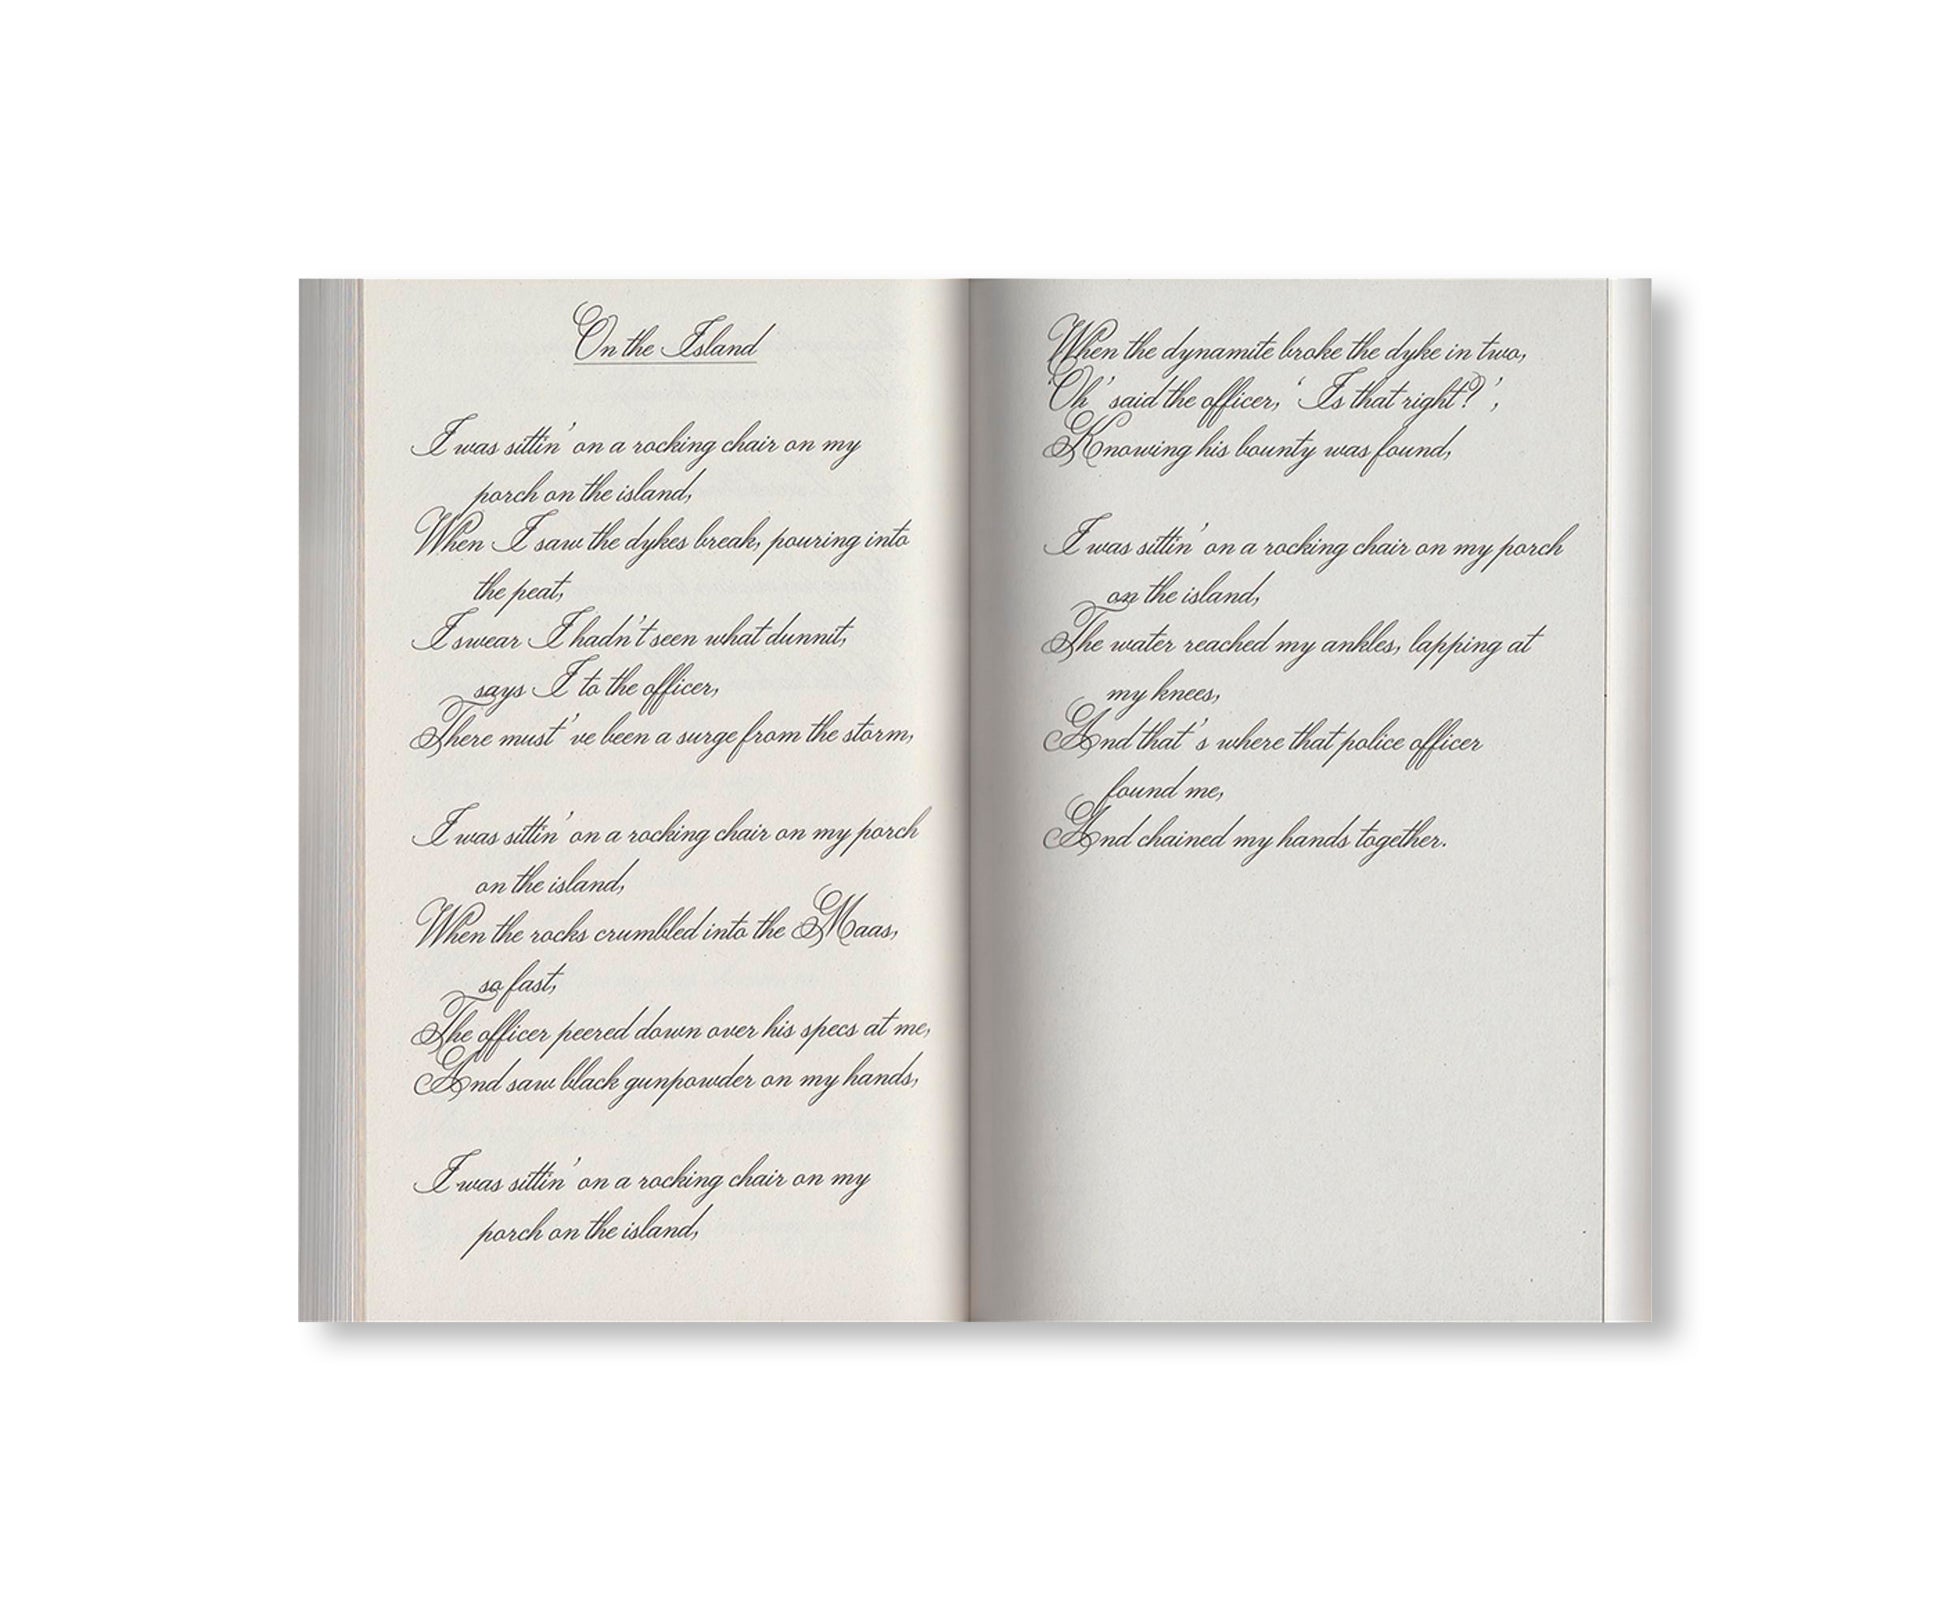 On the Island
I was sittin' on a rocking chair on my
porch on the island,
When I saw the dykes break, pouring into
the peat,
I swear I hadn't seen what dunnit,
says I to the officer,
There must've been a surge from the storm,
I was sittin' on a rocking chair on my porch
on the island,
When the rocks crumbled into the Maas,
so fast,
The officer peered down over his specs at me,
And saw black gunpowder on my hands,
I was sittin' on a rocking chair on my
porch on the island,
When the dynamite broke the dyke in two,
'Oh' said the officer, 'Is that right?',
Knowing his bounty was found,
I was sittin' on a rocking chair on my porch
on the island,
The water reached my ankles, lapping at
my knees,
And that's where that police officer
found me,
And chained my hands together.